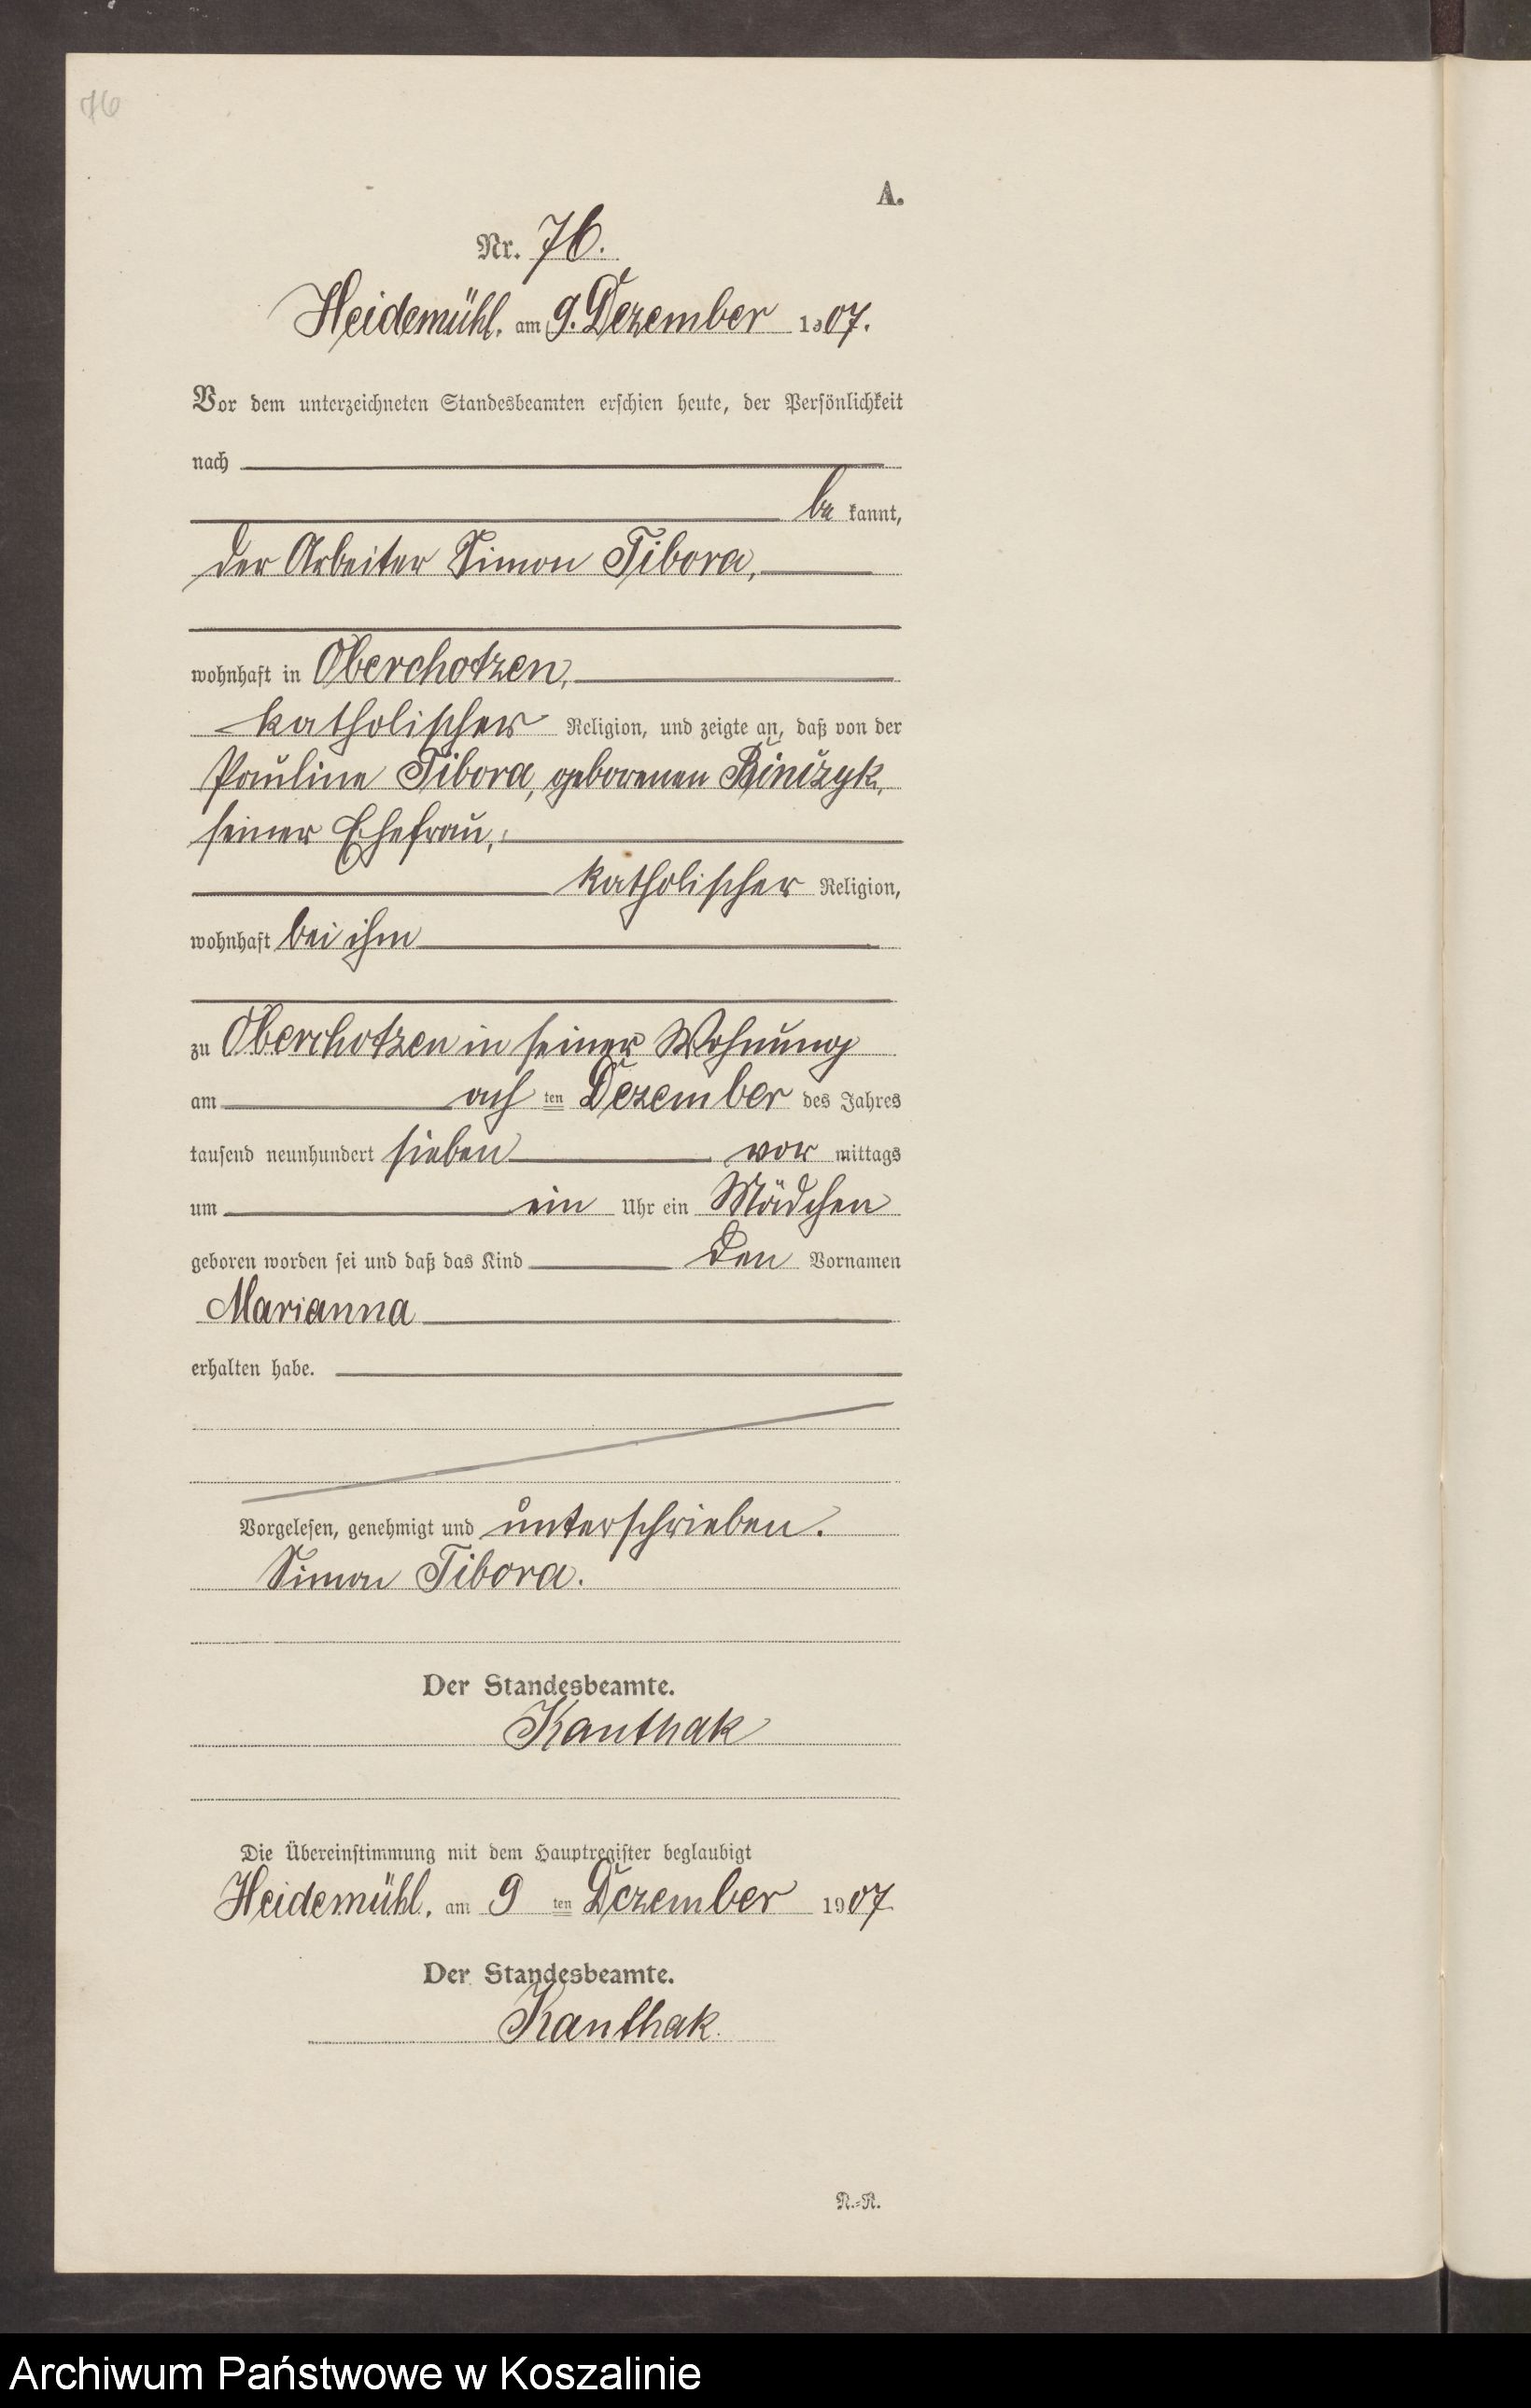 76
A.
Nr. 76.
Heidemühl. am 9. Dezember 1907.
Vor dem unterzeichneten Standesbeamten erschien heute, der Persönlichkeit
nach
be kannt,
der Arbeiter Simon Tibora,
wohnhaft in Oberchotzen,
katholischer Religion, und zeigte an, daß von der
Pauline Tibora, geborenen
seiner Ehefrau,
katholischer Religion,
wohnhaft bei ihm
zu Oberchotzen in seiner Wohnung
am ach ten Dezember des Jahres
tausend neunhundert sieben vor mittags
um ein Uhr ein Mädchen
geboren worden sei und daß das Kind den Vornamen
Marianna
erhalten habe.
Vorgelesen, genehmigt und unterschrieben.
Simon Tibora.
Der Standesbeamte.
Kanthak
Die Übereinstimmung mit dem Hauptregister beglaubigt
Heidemühl, am 9 ten Dezember 1907
Der Standesbeamte.
Kanthak.
N.-R.
Archiwum Państwowe w Koszalinie